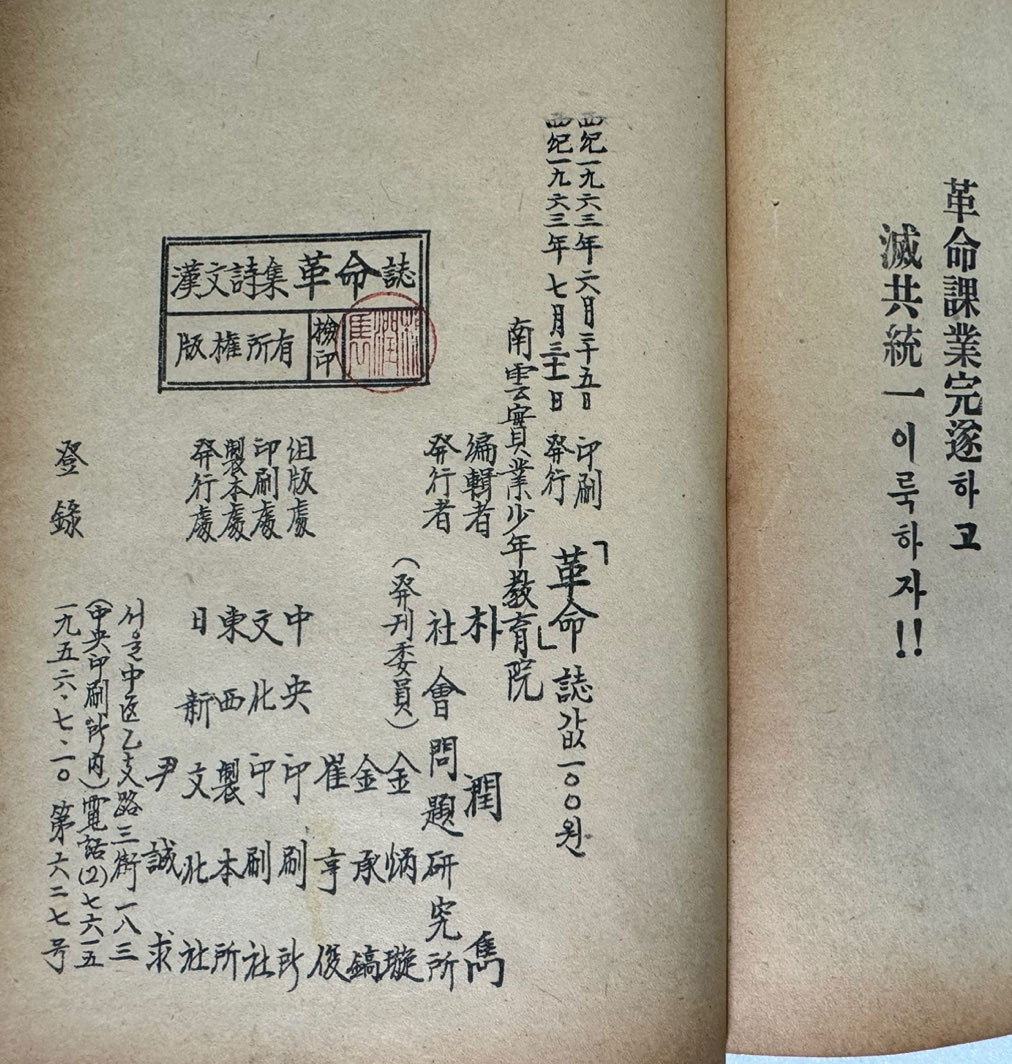 革命課業完遂하고
滅共統一이룩하자!!
西紀一九六三年六月二十五日 印刷
西紀一九六三年七月三十一日 発行
「革命」誌 값 一○○원
南雲實業少年教育院
編輯者 朴潤雋
発行者 社會問題研究所
(発刊委員) 金炳璇
金承鎬
崔亨俊
組版處 中央印刷所
印刷處 文化印刷社
製本處 東西製本所
発行處 日新文化社
尹誠求
서울中区乙支路三街一八三
(中央印刷所内)電話(2)七六一五
登録 一九五六·七·一○ 第六二七号
漢文詩集革命誌
版權所有
檢印
朴潤雋